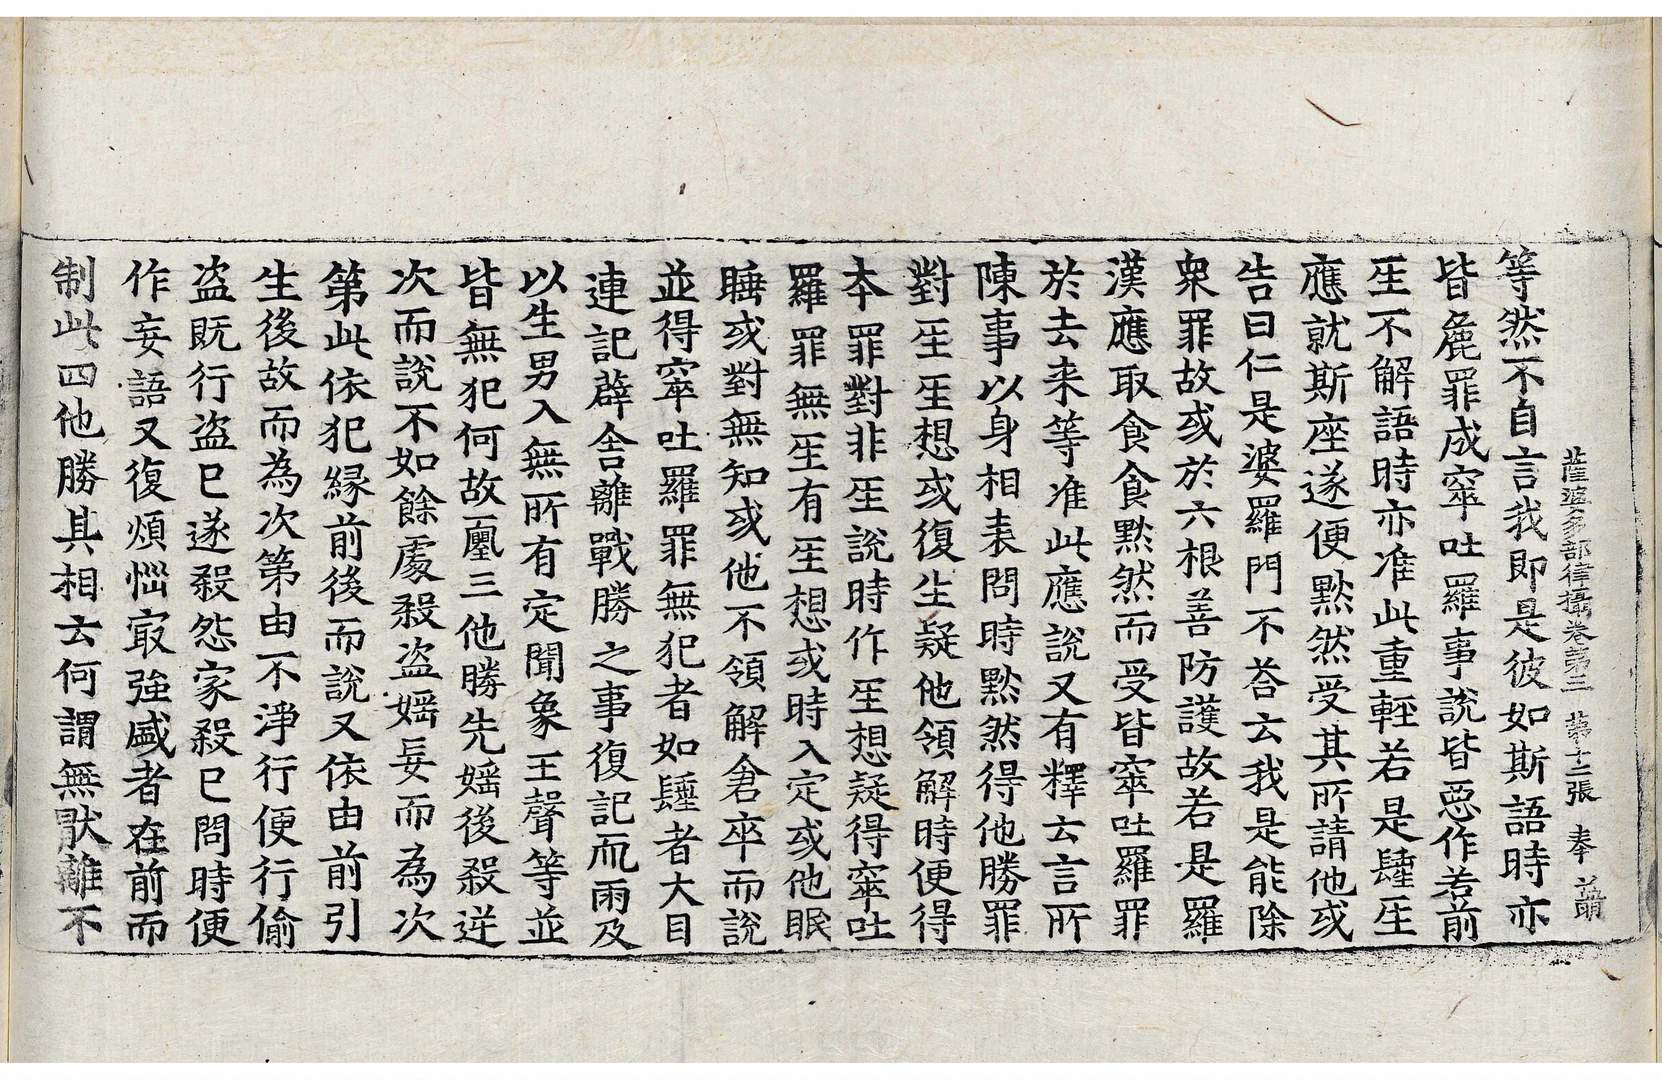 薩婆多部律攝卷第三　第十二張　奉
等然不自言我即是彼如斯語時亦
皆麁罪成窣吐羅事說皆惡作若前
𤯔不解語時亦准此重輕若是𨤲𤯔
應就斯座遂便默然受其所請他或
告曰仁是婆羅門不荅云我是能除
衆罪故或於六根善防護故若是羅
漢應取食食默然而受皆窣吐羅罪
於去来等准此應說又有釋云言所
陳事以身相表問時默然得他勝罪
對𤯔𤯔想或復生疑他領解時便得
本罪對非𤯔說時作𤯔想疑得窣吐
羅罪無𤯔有𤯔想或時入定或他眠
睡或對無知或他不領解倉卒而說
並得窣吐羅罪無犯者如𨤲者大目
連記薜舍離戰勝之事復記雨及
以生男入無所有定聞象王聲等並
皆無犯何故𠪨三他勝先婬後殺逆
次而說不如餘處殺盗婬妄而為次
第此依犯緣前後而說又依由前引
生後故而為次第由不淨行便行偷
盗既行盗已遂殺怨家殺已問時便
作妄語又復煩惱㝡強盛者在前而
制此四他勝其相云何謂無猒離不